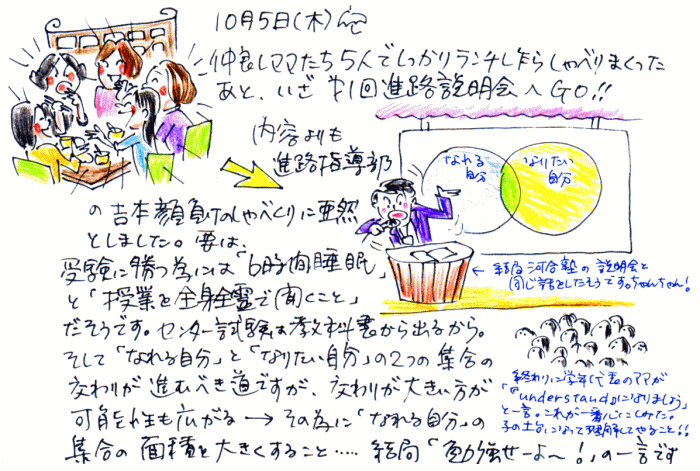 10月5日(木)
仲良しママたち5人でしっかりランチしながらしゃべりまくった
あと、いざ 第1回進路説明会へGO!!
内容よりも
進路指導部
の吉本顔負けのしゃべくりに唖然
としました。要は、
受験に勝つ為には「6時間睡眠」
と「授業を全身全霊で聞くこと」
だそうです。センター試験は教科書から出るから。
そして「なれる自分」と「なりたい自分」の2つの集合の
交わりが進むべき道ですが、交わりが大きい方が
可能性も広がる → その為に「なれる自分」の
集合の面積を大きくすること…… 結局「勉強せーよ〜!」の一言です
なれる
自分
なりたい
自分
← 結局 河合塾の説明会と
同じ話をしたそうです。ちゃんちゃん!
終わりに学年代表のママが
「"understand"になりましょう」
と一言。これが一番心にしみた。
子の土台になって理解してやること!!